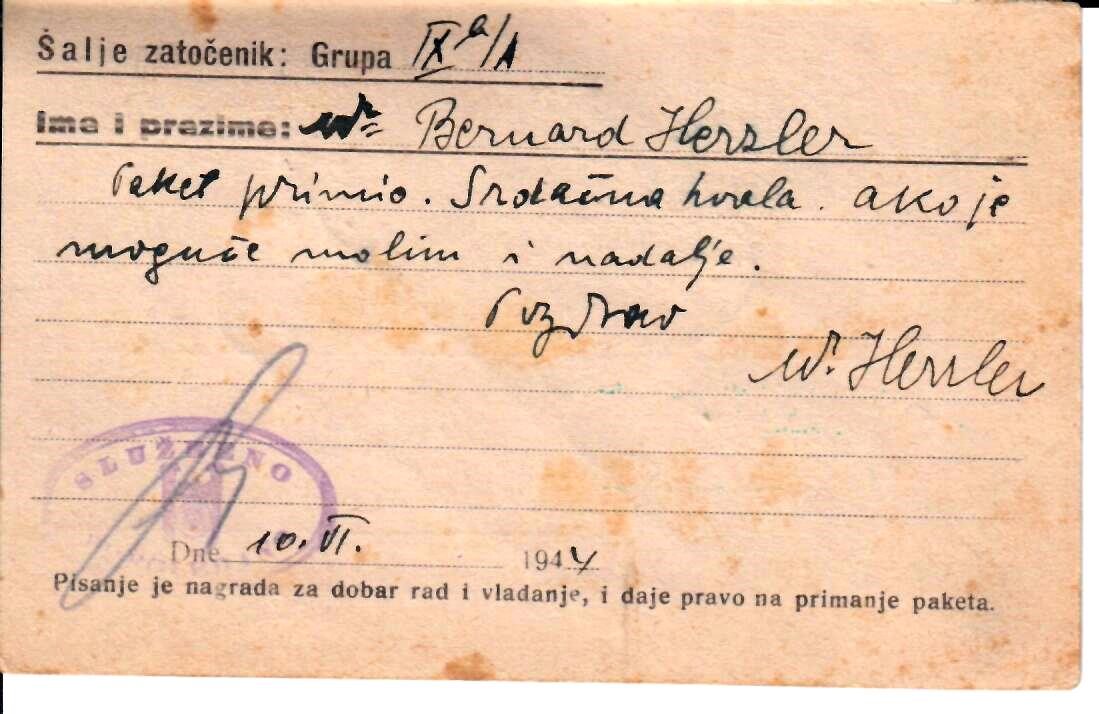 Šalje zatočenik: Grupa IXa/A
Ime i prezime: Dr. Bernard Herzler
Paket primio. Srdačna hvala. ako je
moguće molim i nadalje.
Pozdrav
Dr. Herzler
SLUŽBENO
Dne 10. VI. 1944
Pisanje je nagrada za dobar rad i vladanje, i daje pravo na primanje paketa.